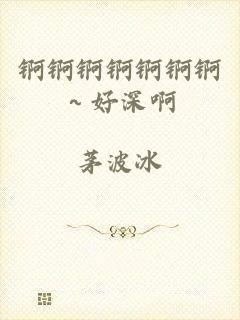 锕锕锕锕锕锕锕
~好深啊
茅波冰